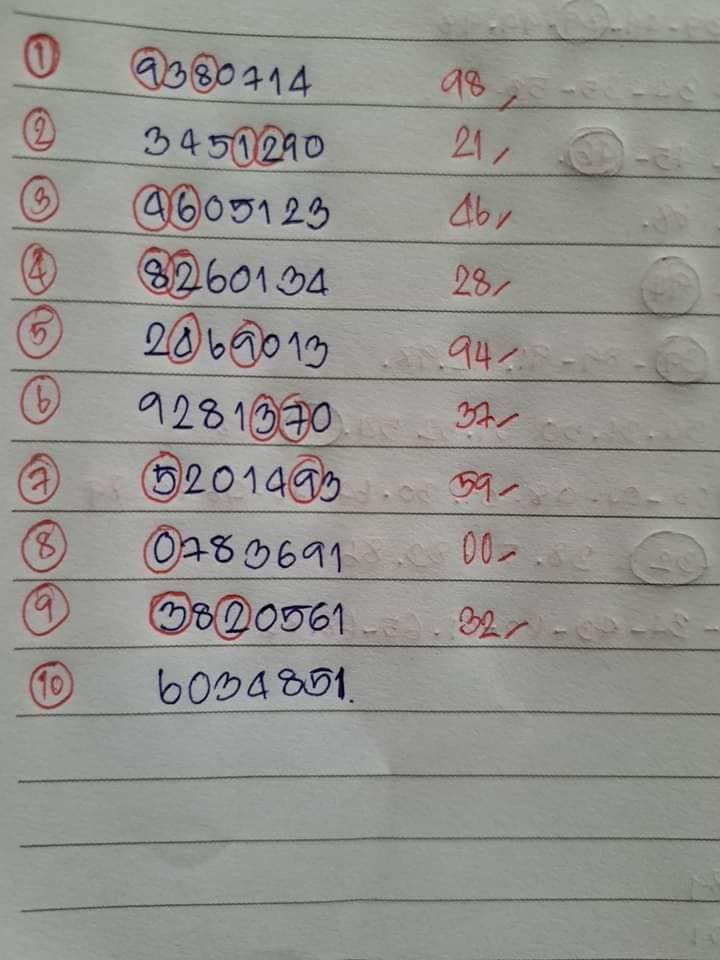 1 9380714 98,
2 3451290 21,
3 4605123 46,
4 8260134 28,
5 2469013 94,
6 9281370 37,
7 5201493 59,
8 0783691 00,
9 3820561 32,
10 6034851.